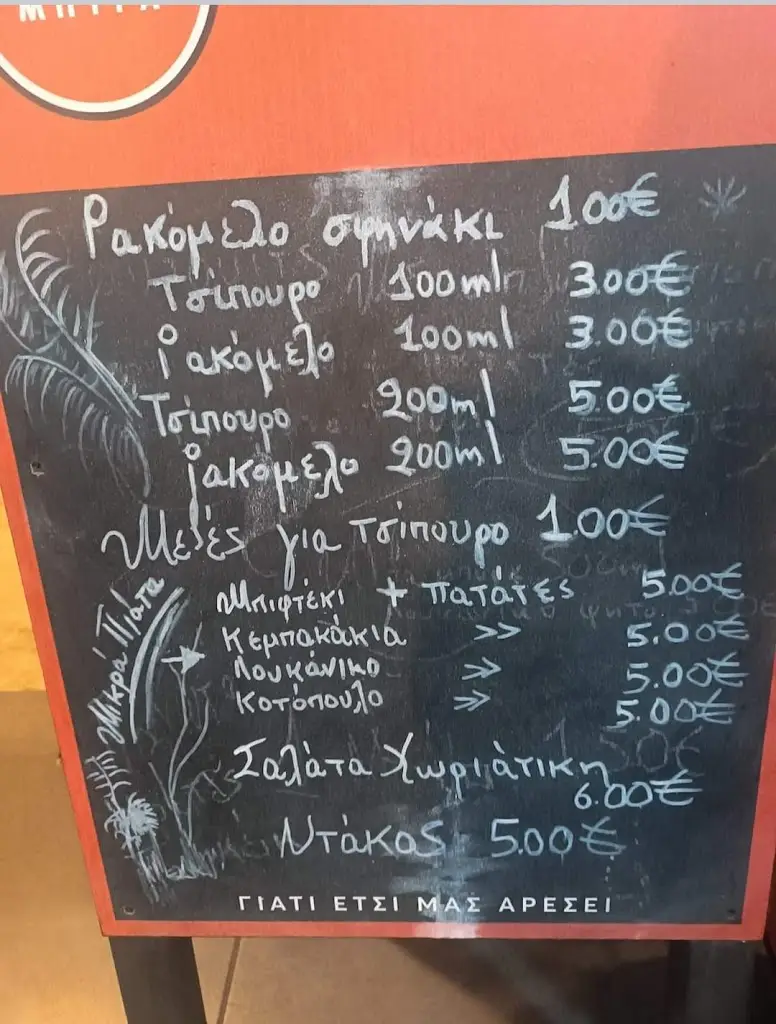 ΜΠΥΡΑ
Ρακόμελο σφηνάκι 1.00€
Τσίπουρο 100ml 3.00€
ρακόμελο 100ml 3.00€
Τσίπουρο 200ml 5.00€
ρακόμελο 200ml 5.00€
Μεζές για τσίπουρο 1.00€
Μικρά Πιάτα
Μπιφτέκι + πατάτες 5.00€
Κεμπακάκια >> 5.00€
Λουκάνικο >> 5.00€
Κοτόπουλο >> 5.00€
Σαλάτα Χωριάτικη
6.00€
Ντάκος 5.00€
ΓΙΑΤΙ ΕΤΣΙ ΜΑΣ ΑΡΕΣΕΙ